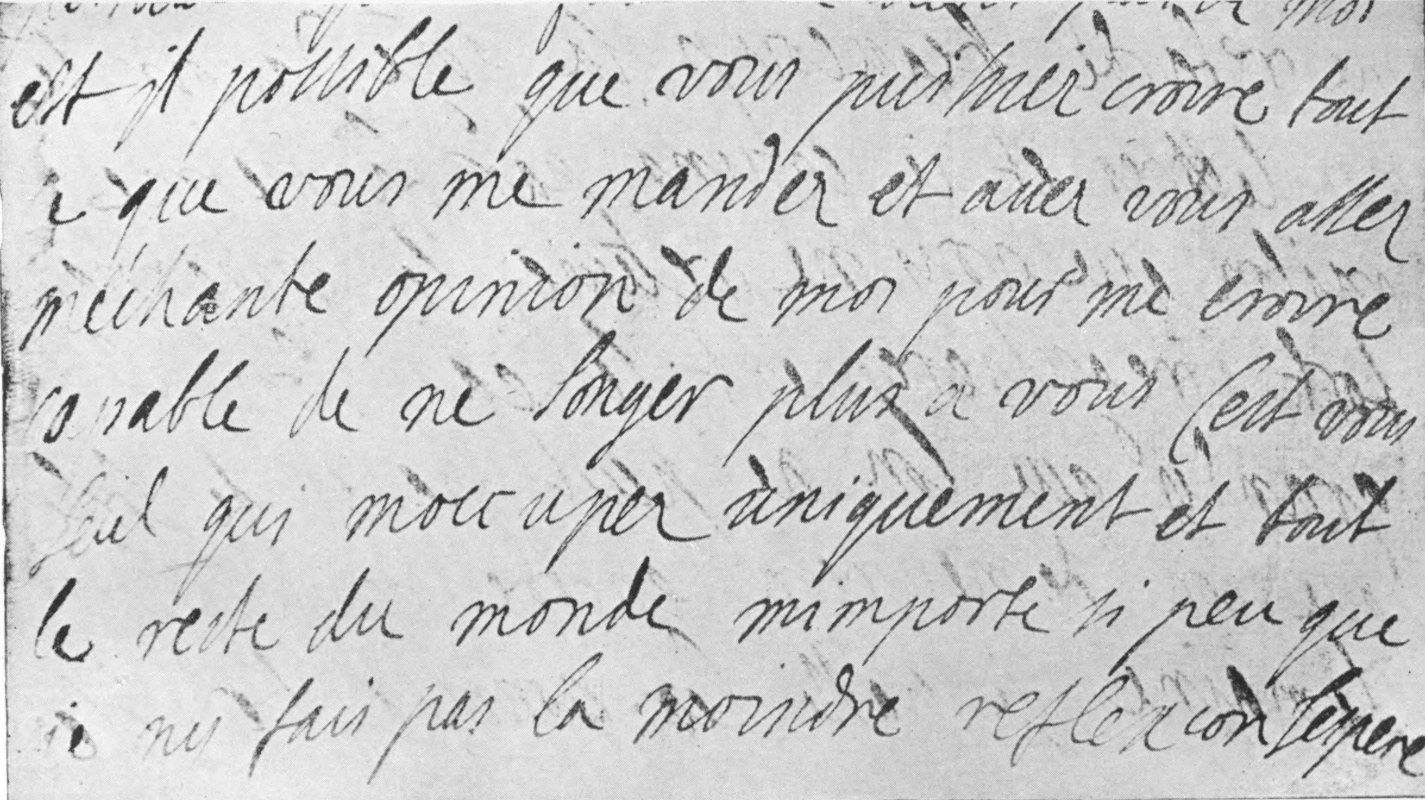 moi
est il possible que vous puissiez croire tout
ce que vous me mandez et avez vous assez
méchante opinion de moi pour me croire
capable de ne songer plus a vous Cest vous
seul qui moccupez uniquement et tout
le reste du monde mimporte si peu que
je nis fais pas la moindre reflexion Jespere